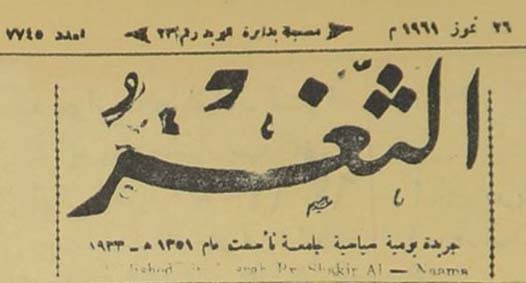 ٢٦ تموز ١٩٦١ م مسجلة بدائرة البريد رقم ٢٣ العدد ٧٧٤٥
الثَّغْرُ
جريدة يومية سياسية جامعة تأسست عام ١٣٥١ هـ ـ ١٩٣٣
Shakir Al — Naama